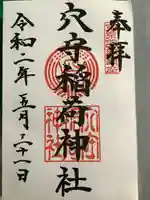 奉拝
穴守稲荷神社
令和二年五月六十一日